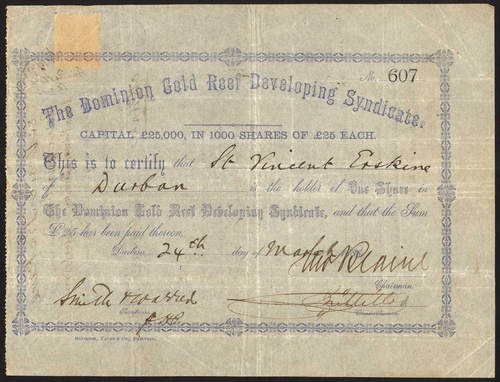 No. 607
The Dominion Gold Reef Developing Syndicate.
CAPITAL £25,000, IN 1000 SHARES OF £25 EACH.
This is to certify that St Vincent Erskine
of Durban is the holder of One Share in
The Dominion Gold Reef Developing Syndicate, and that the Sum
£25 has been paid thereon.
Durban 24th day of March
Chairman.